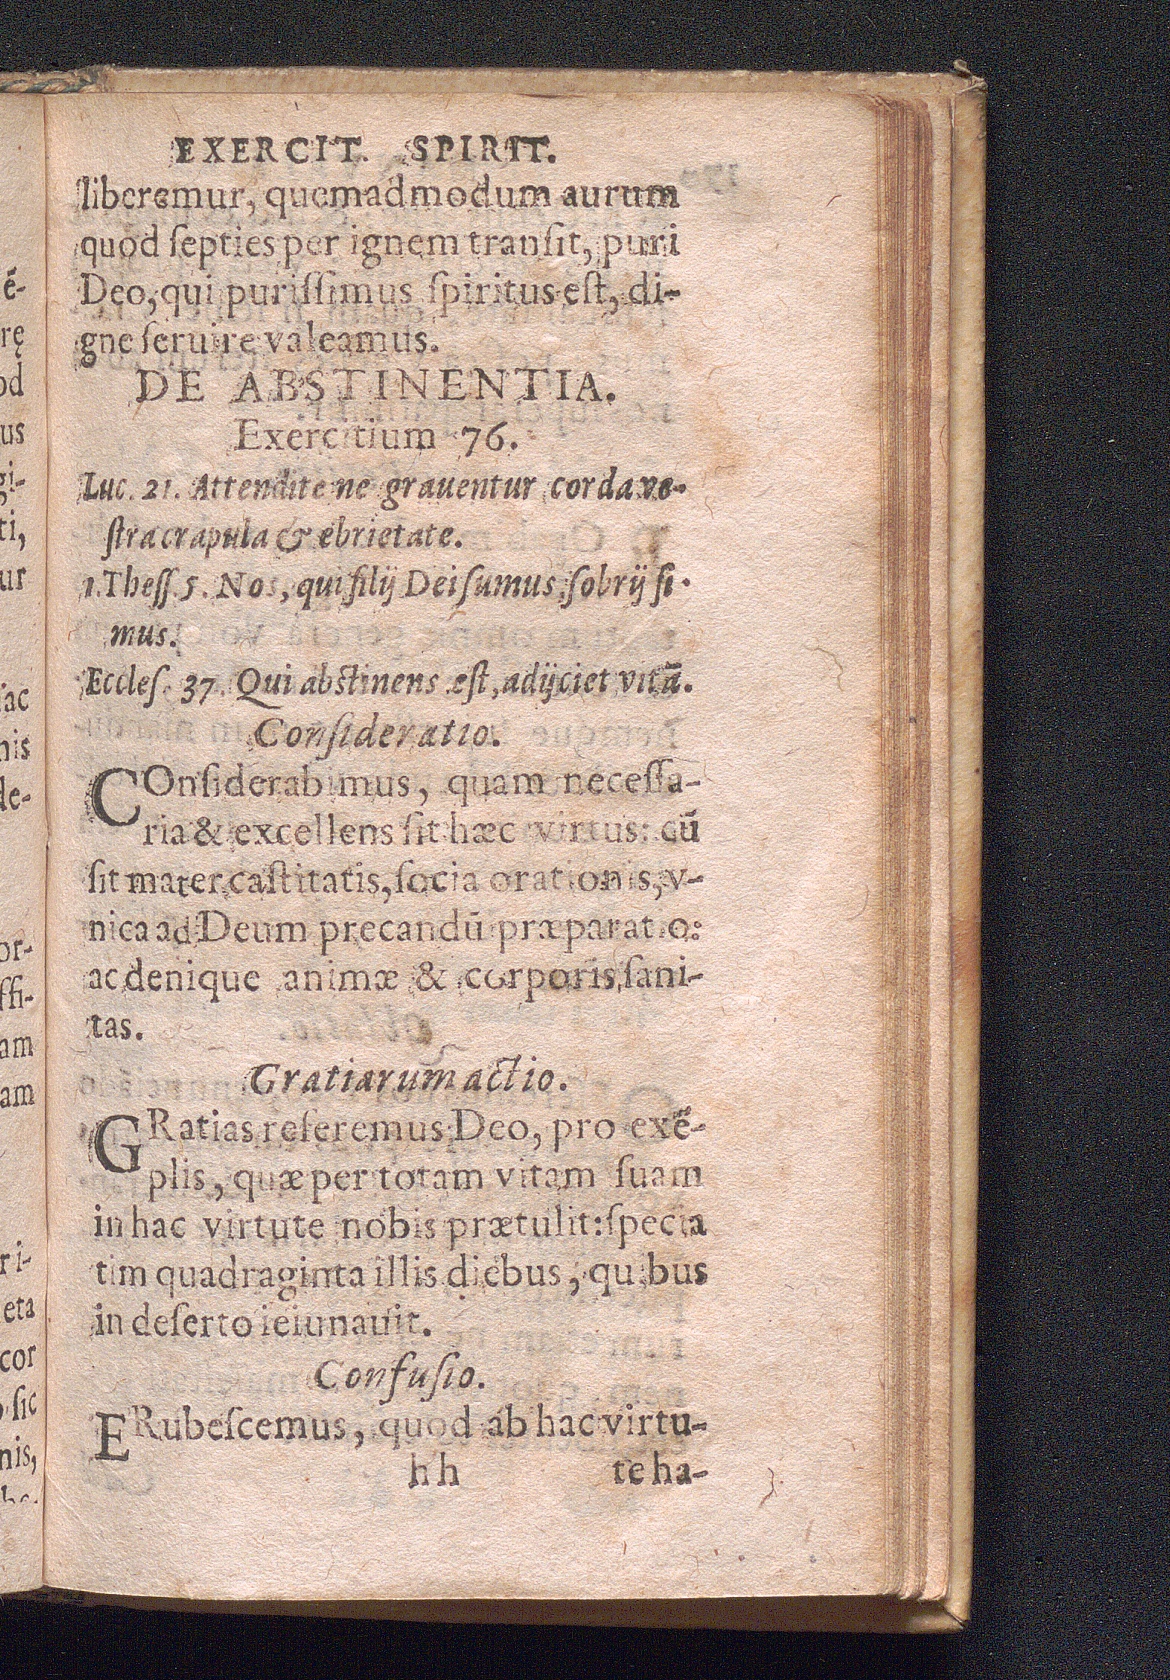 EXERCIT. SPIRIT.
liberemur, quemadmodum aurum
quod ſepties per ignem tranſit, puri
Deo, qui puriſſimus ſpiritus eſt, di-
gne ſeruire valeamus.
DE ABSTINENTIA.
Exercitium 76.
Luc. 21. Attendite ne grauentur corda ve-
ſtra crapula & ebrietate.
1. Theſſ. 5. Nos, qui filij Dei ſumus, ſobrij ſi-
mus.
Eccleſ. 37. Qui abſtinens eſt, adijciet vitā.
Conſideratio.
COnſiderabimus, quam neceſſa-
ria & excellens ſit hæc virtus: cū
ſit mater caſtitatis, ſocia orationis, v-
nica ad Deum precandū præparatio:
ac denique animæ & corporis ſani-
tas.
Gratiarum actio.
GRatias referemus Deo, pro exē-
plis, quæ per totam vitam ſuam
in hac virtute nobis prætulit: ſpecia
tim quadraginta illis diebus, quibus
in deſerto ieiunauit.
Confuſio.
ERubeſcemus, quod ab hac virtu-
hh te ha-
ē-
rę
od
us
gi-
ti,
ur
ſac
nis
de-
or-
ſſi-
am
am
ri-
eta
cor
ſic
nis,